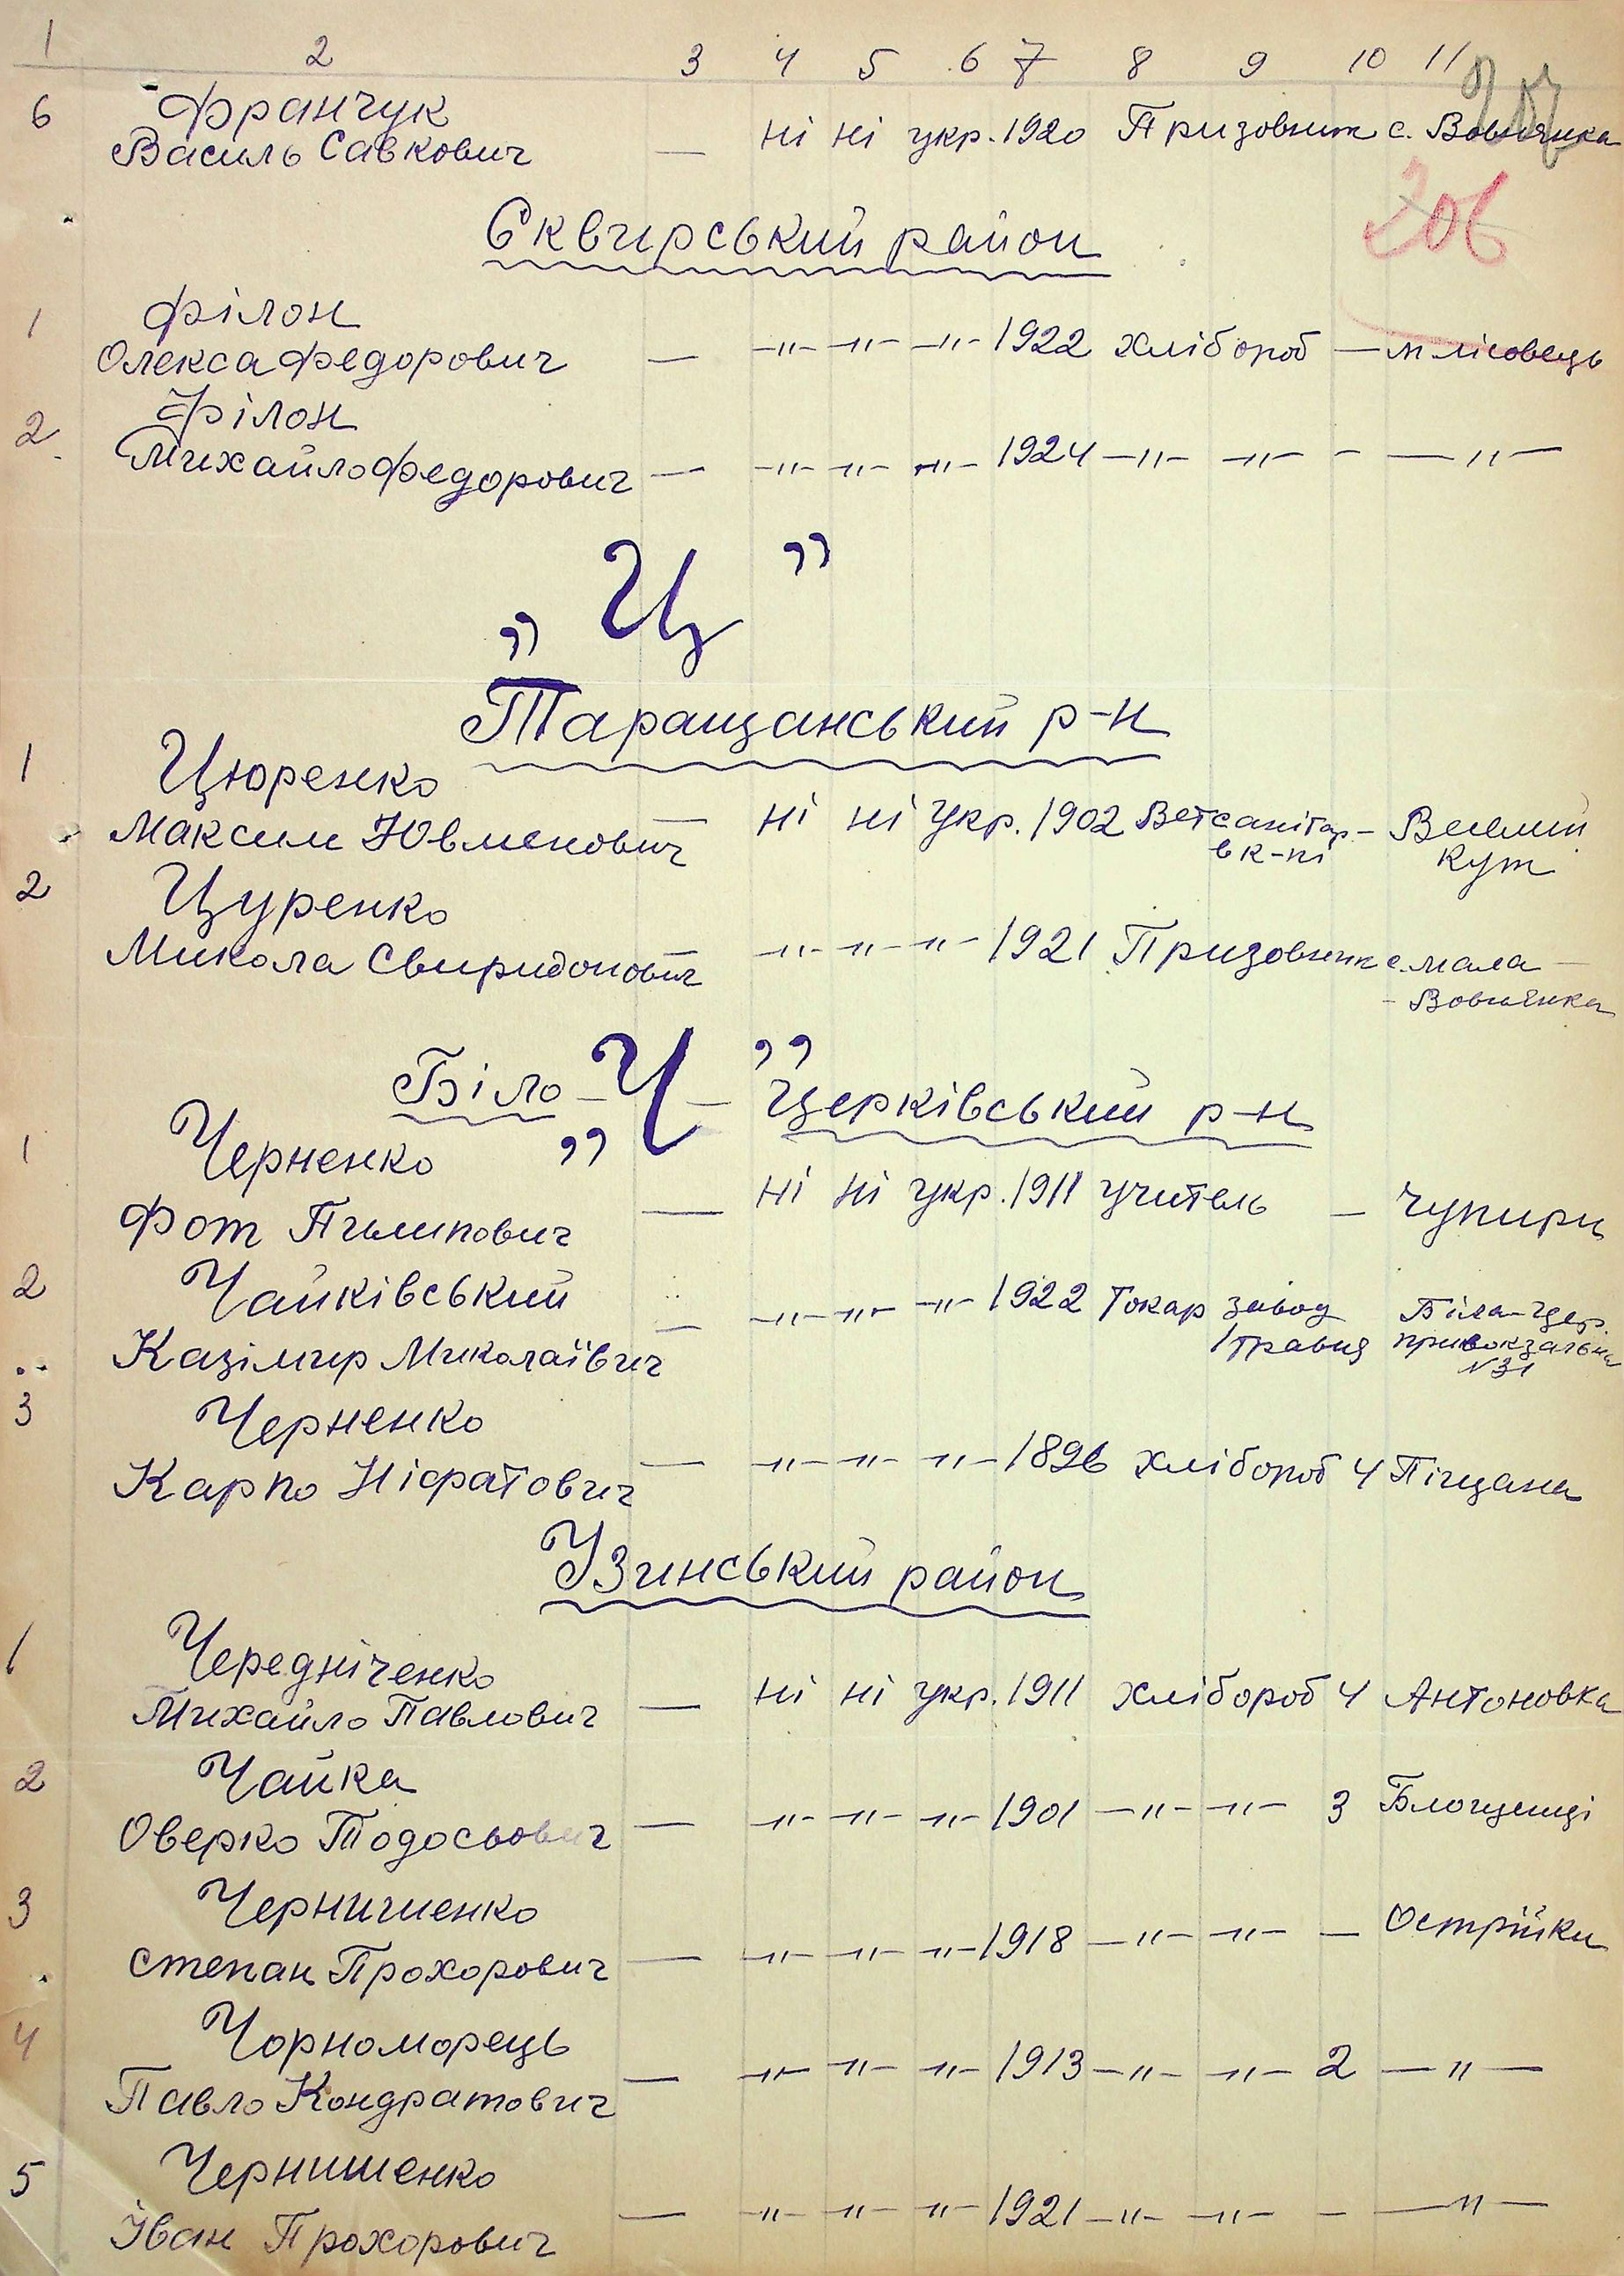 1 2 3 4 5 6 7 8 9 10 11
207
6 Франчук
Василь Савкович — ні ні укр. 1920 Призовник с. Вовнянка
206
Сквирський район
1 Філон
Олекса Федорович — -"- -"- -"- 1922 хлібороб — м лісовець
2 Філон
Михайло Федорович — -"- -"- -"- 1924 -"- -"- - —"—
„Ц”
Таращанський р-н
1 Цюренко
Максим Ювменович — ні ні укр. 1902 Ветсанітар — Великий
в к-пі Кут
2 Цуренко
Микола Свиридонович — -"- -"- -"- 1921 Призовник с. мала —
- Вовнянка
„Ч”
Біло - Церківський р-н
1 Черненко
Фот Пилипович — ні ні укр. 1911 учитель — Чупири
2 Чайківський
Казімир Миколаївич — -"- -"- -"- 1922 Токар завод Біла-Цер.
1 травня привокзальна
№31
3 Черненко
Карпо Ніфратович — -"- -"- -"- 1896 хлібороб 4 Піщана
Узинський район
1 Чередніченко
Михайло Павлович — ні ні укр. 1911 хлібороб 4 Антоновка
2 Чайка
Оверко Тодосьович — -"- -"- -"- 1901 -"- -"- 3 Блощенці
3 Чернишенко
Степан Прохорович — -"- -"- -"- 1918 -"- -"- — Острійки
4 Чорноморець
Павло Кондратович — -"- -"- -"- 1913 -"- -"- 2 —"—
5 Чернишенко
Іван Прохорович — -"- -"- -"- 1921 -"- -"- - —"—